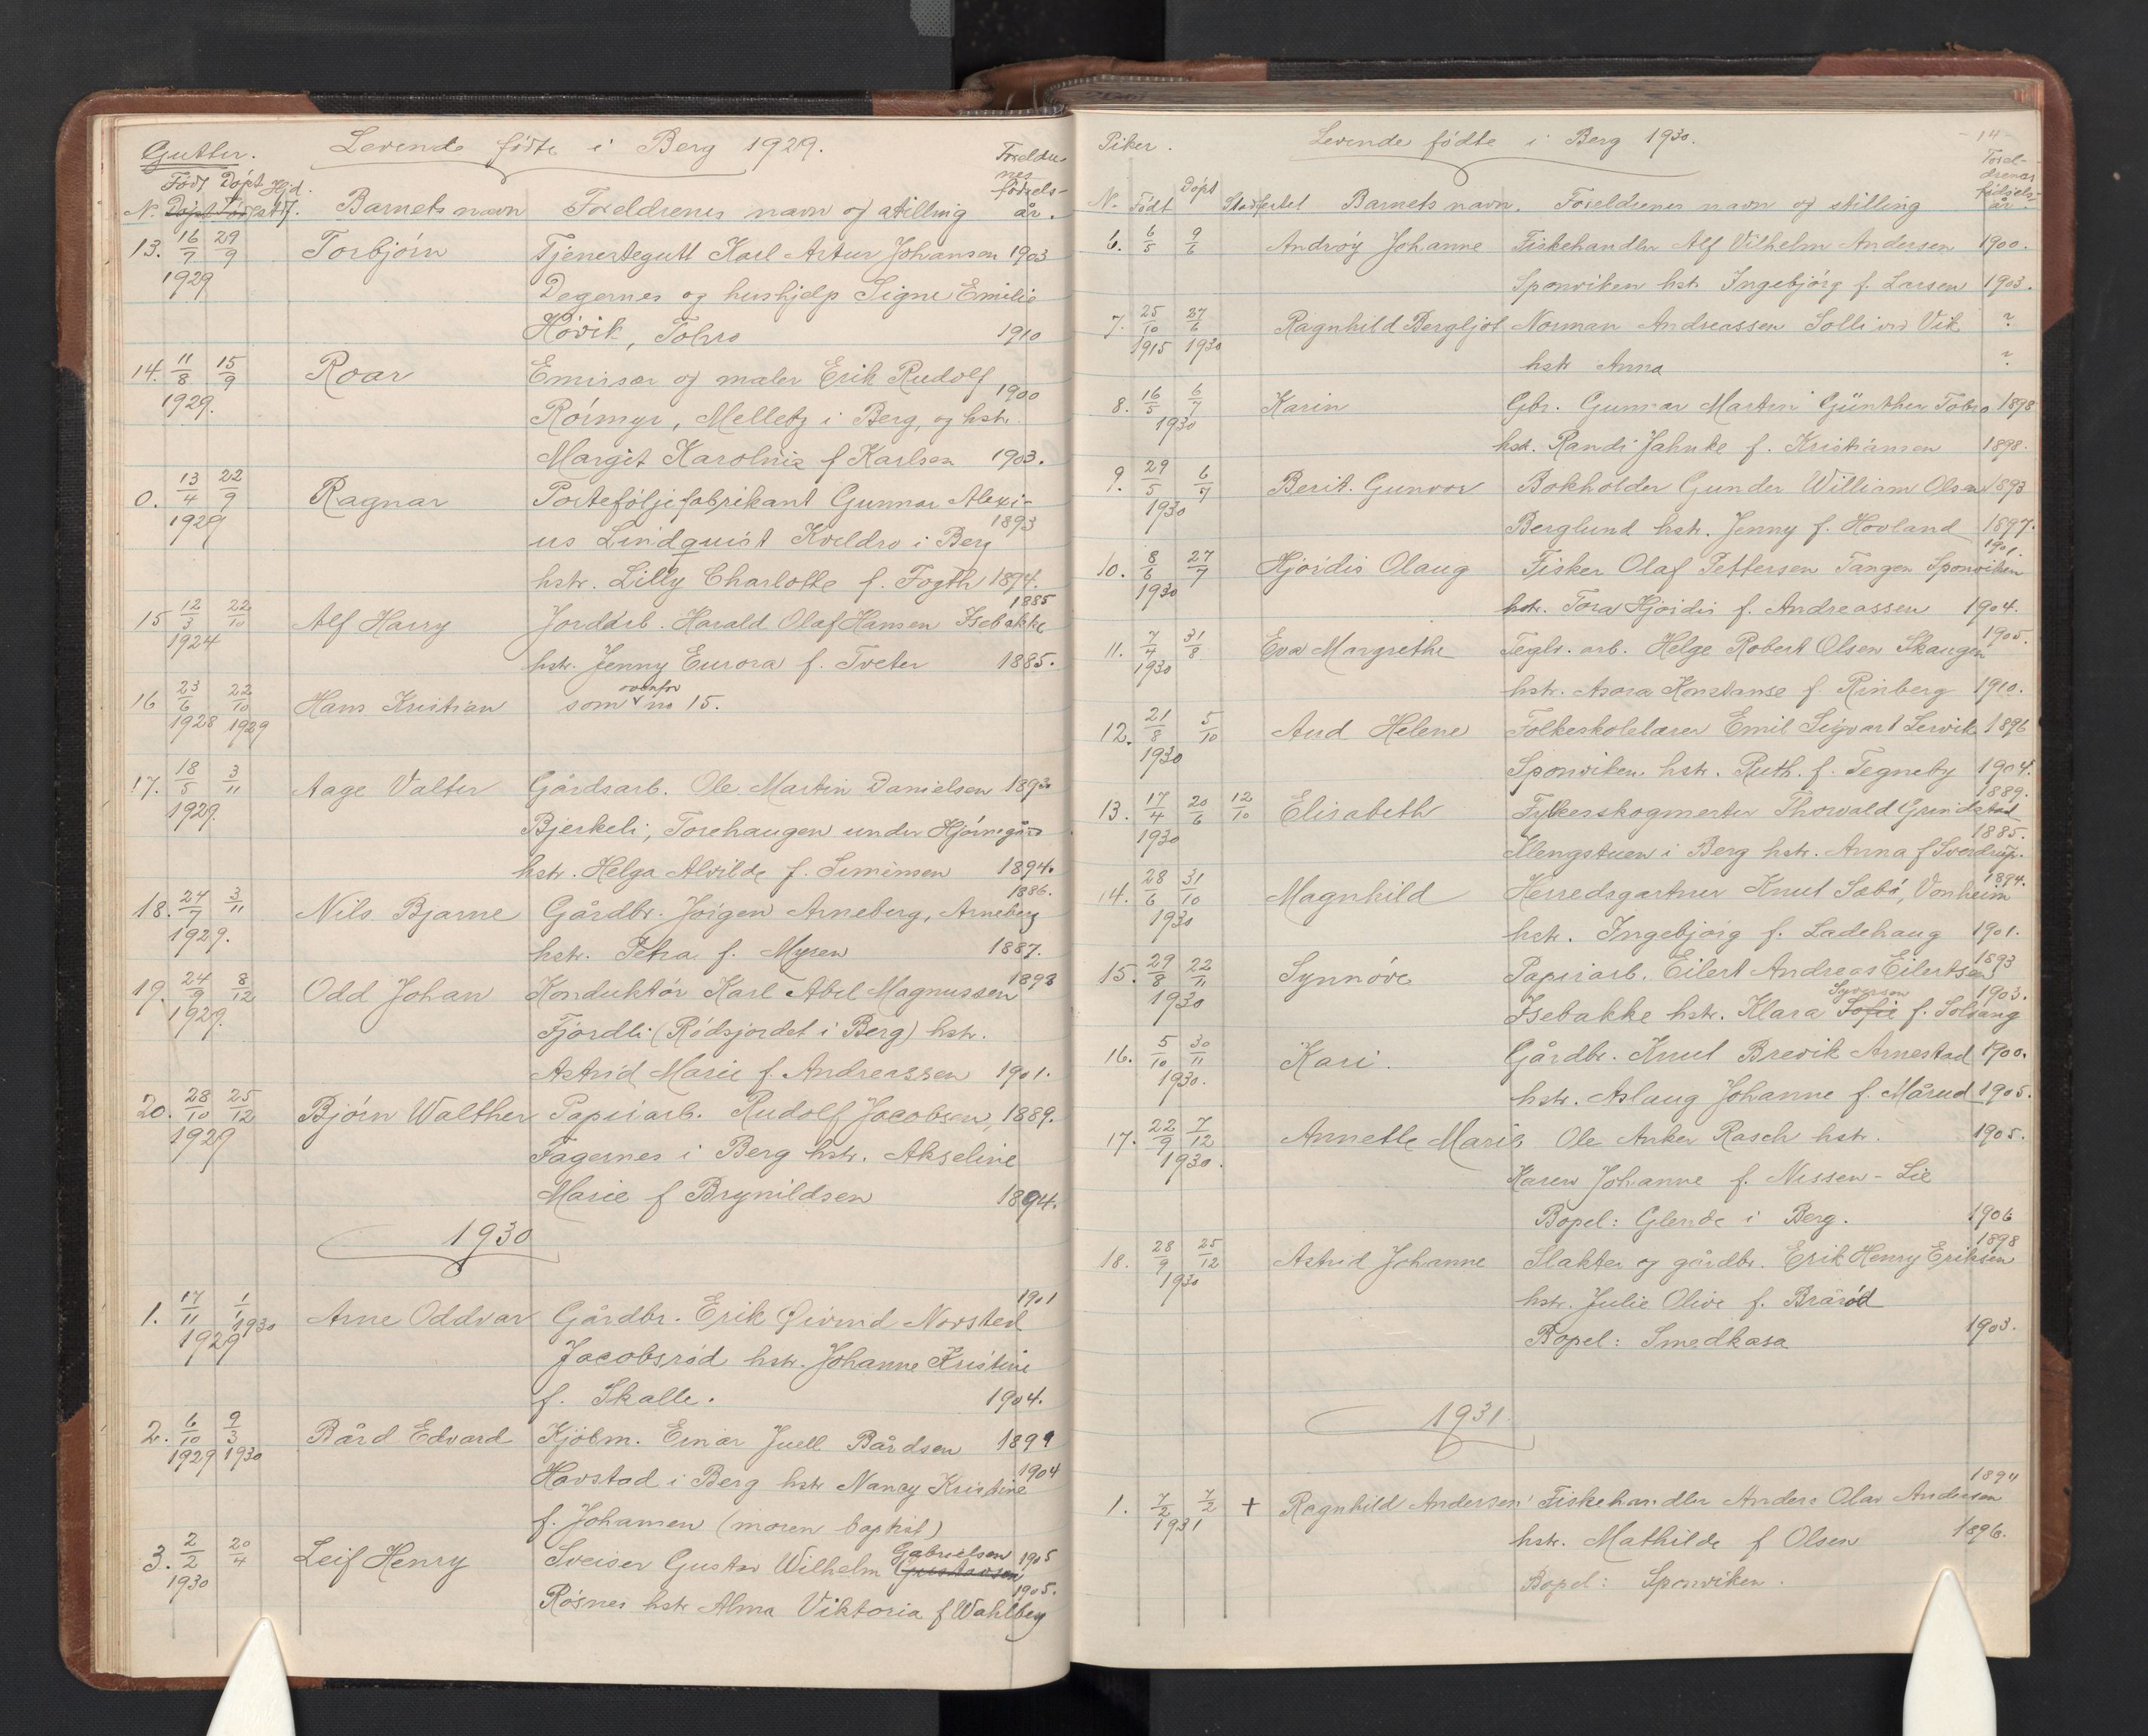 Gutter. Levende fødte i Berg 1929. Foreldre-
nes
fødsels-
år.
Født Døpt Hjd.
N. Døpt Født stf. Barnets navn Foreldrenes navn og stilling
13. 16/7 29/9 Torbjørn Tjenertegutt Karl Artur Johansen 1903
1929 Degernes og hushjelp Signe Emilie
Høvik, Tobro 1910
14. 11/8 15/9 Roar Emissær og maler Erik Rudolf 1900
1929. Rørmyr, Melleby i Berg, og hstr.
Margit Karolnie f Karlsen 1903.
0. 13/4 22/9 Ragnar Porteføljefabrikant Gunnar Alexi-
1929 us Lindquist Kveldro i Berg 1893
hstr. Lilly Charlotte f. Fogth 1874.
15 12/3 22/10 Alf Harry Jordarb. Harald Olaf Hansen Isebakke 1885
1924 hstr. Jenny Eurora f. Tveter 1885.
16 23/6 22/10 Hans Kristian som ovenfor no 15.
1928 1929
17. 18/5 3/11 Aage Valter Gårdsarb. Ole Martin Danielsen 1893
1929. Bjerkeli, Torehaugen under Hjørnegård
hstr. Helga Alvilde f. Siminsen 1894.
18. 24/7 3/11 Nils Bjarne Gårdbr. Jørgen Arneberg, Arneberg 1886.
1929. hstr. Petra f. Mysen 1887.
19. 24/9 8/12 Odd Johan Konduktør Karl Abel Magnussen 1898
1929. Fjordli (Rødsjordet i Berg) hstr.
Astrid Marie f. Andreassen 1901.
20. 28/10 25/12 Bjørn Walther Papirarb. Rudolf Jacobsen, 1889.
1929 Fagernes i Berg hstr. Akseline
Marie f Brynildsen 1894.
1930
1. 17/11 1/1 Arne Oddvar Gårdbr. Erik Øivind Norsted 1901
1929 1930 Jacobsrød hstr. Johanne Kristine
f. Skalle. 1904.
2. 6/10 9/3 Bård Edvard Kjøbm. Einar Juell Bårdsen 1899
1929 1930 Havstad i Berg hstr Nancy Kristine 1904
f. Johansen (moren baptist)
3. 2/2 20/4 Leif Henry Sveiser Gustav Wilhelm Gabrielsen Gustavsen 1905
1930 Røsnes hstr Alma Viktoria f Wahlberg 1905.
Piker. Levende fødte i Berg 1930. -14-
Forel-
drenes
fødsels-
år.
N. Født Døpt Stadfestet Barnets navn. Foreldrenes navn og stilling
6. 6/5 9/6 Andrøy Johanne Fiskehandler Alf Vilhelm Andersen 1900.
Sponviken hstr Ingebjørg f. Larsen 1903.
7. 25/10 27/6 Ragnhild Bergljot Norman Andreassen Solli ved Vik ?
1915 1930 hstr Anna ?
8. 16/5 6/7 Karin Gbr. Gunnar Martin Günther Tobro 1898
1930 hstr. Randi Jahnke f. Kristiansen 1898.
9. 29/5 6/7 Berit. Gunvor Bokholder Gunder William Olsen 1893
1930 Berglund hstr. Jenny f. Hovland 1897.
10. 8/6 27/7 Hjørdis Olaug Fisker Olaf Pettersen Tangen Sponviken 1901.
1930 hstr. Tora Hjørdis f. Andreassen 1904.
11. 7/4 31/8 Eva Margrethe Teglv. arb. Helge Robert Olsen Skaugen 1905.
1930 hstr. Asora Konstanse f. Rinberg 1910.
12. 21/8 5/10 Aud Helene Folkeskolelærer Emil Sigvart Lervik 1896
1930 Sponviken hstr. Ruth. f. Tegneby 1904.
13. 17/4 20/6 12/10 Elisabeth Fylkesskogmester Thorvald Grindstad 1889.
1930 Klengstuen i Berg hstr. Anna f Sverdrup. 1885.
14. 28/6 31/10 Magnhild Herredsgartner Knut Sæbø, Vonheim 1894.
1930 hstr. Ingebjørg f. Ladehaug 1901.
15. 29/8 22/11 Synnøve Papirarb. Eilert Andreas Eilertsen 1893
1930 Isebakke hstr. Klara Sofie Syversen f. Solvang 1903.
16. 5/10 30/11 Kari. Gårdbr. Knut Brevik Arnestad 1900.
1930. hstr. Aslaug Johanne f. Mårud 1905.
17. 22/9 7/12 Annette Marie Ole Anker Rasch hstr. 1905.
1930. Karen Johanne f. Nissen-Lie
Bopel: Glende i Berg. 1906
18. 28/9 25/12 Astrid Johanne Slakter og gårdbr. Erik Henry Eriksen 1898
1930 hstr. Julie Olive f. Brårød
Bopel: Smedkasa 1903.
1931
1. 7/2 7/2 + Ragnhild Andersen Fiskehandler Anders Olav Andersen 1894
1931 hstr. Mathilde f Olsen 1896.
Bopel: Sponviken.